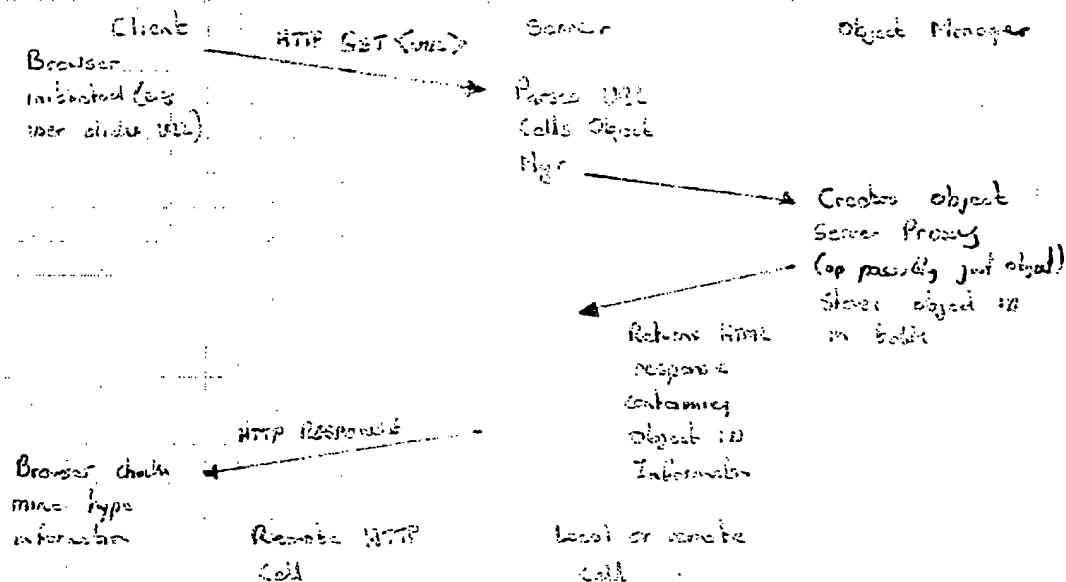 Client
HTTP GET <URL>
Server
Object Manager
Browser
user clicks URL)
Parses URL
Calls Object
Mgr
Creates object
Server Proxy
(or possibly just object)
Stores object ID
in table
Returns HTML
response
containing
object ID
Information
HTTP RESPONSE
Browser checks
mime type
information
Remote HTTP
Call
Local or remote
Call